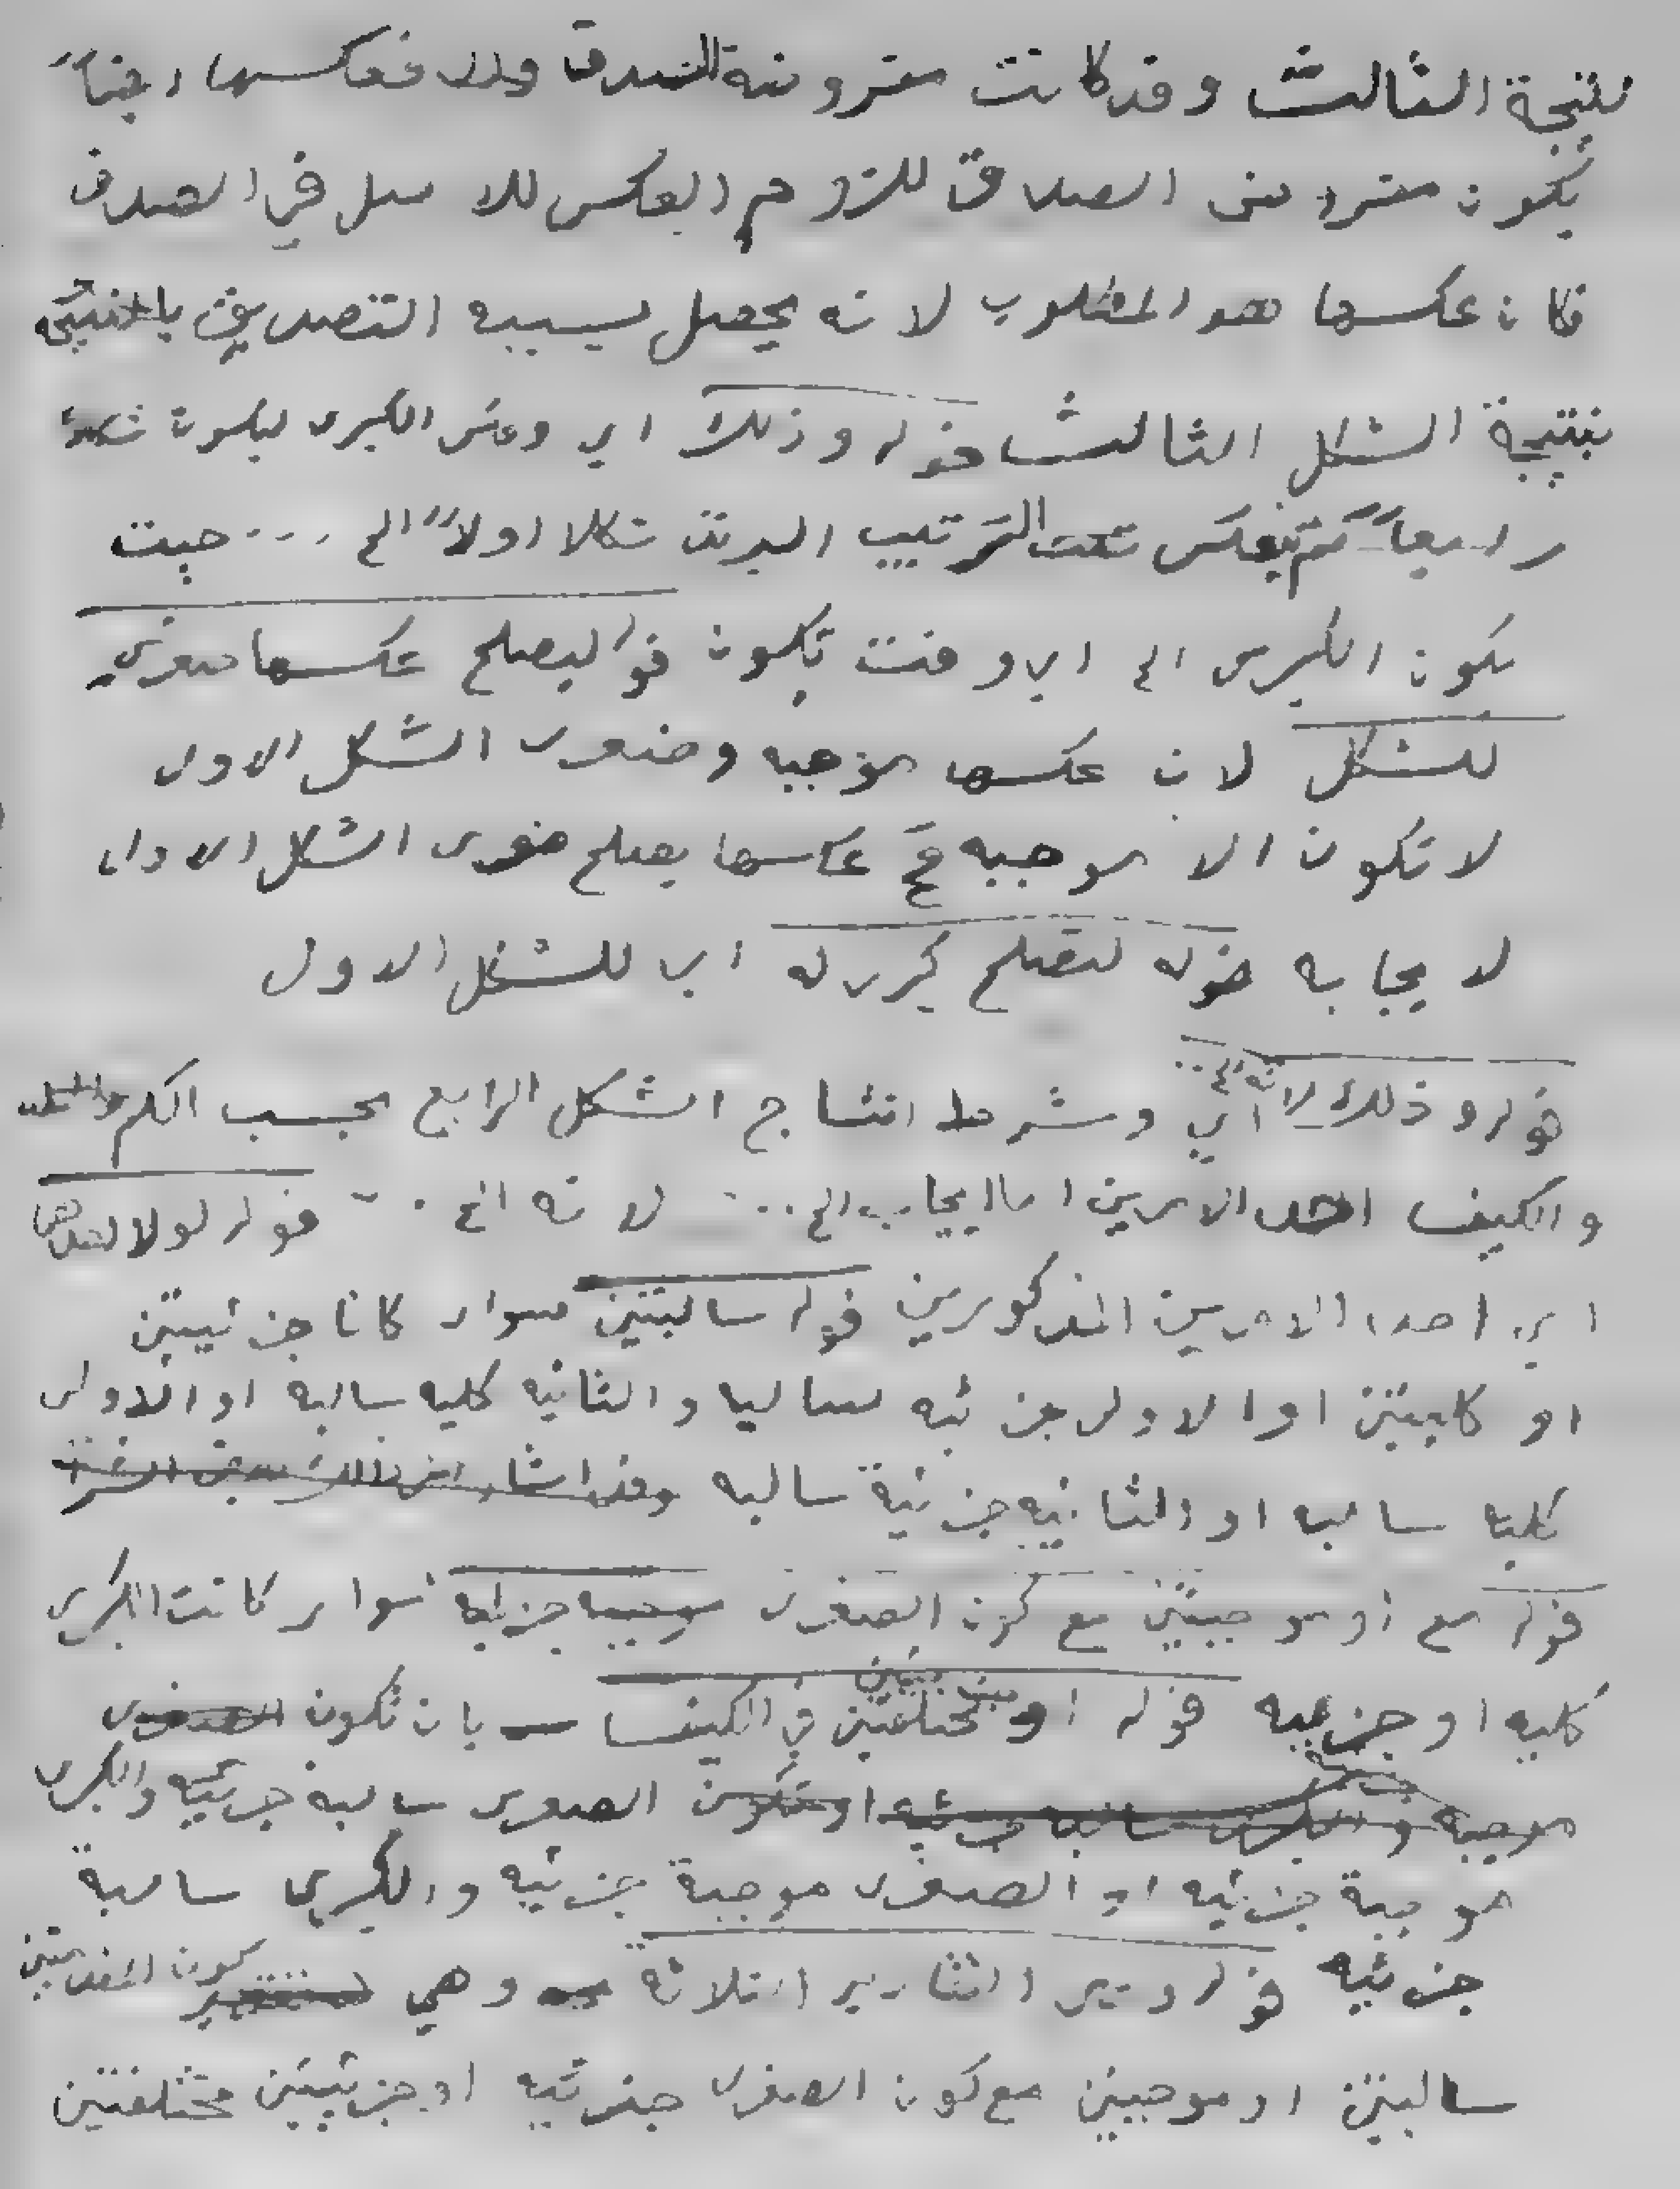 نتيجة الثالث وقد كانت مفروضة الصدق فعكسها ايضاً
يكون مفروض الصدق للزوم العكس للاصل في الصدق
فكان عكسها هو المطلوب لانه يحصل بسببه التصديق بالنتيجه
بنتيجة الشكل الثالث قوله وذلك اي وعكس الكبرى ليكون شكلا
رابعاً ثم ينعكس الترتيب ليرتد شكلا اولاً الخ ... حيث
يكون الكبرى الخ اي وقت يكون قوله ليصلح عكسها صغرى
للشكل لان عكسها موجبه وصغرى الشكل الاول
لا تكون الا موجبه عكسها يصلح صغرى الشكل الاول
لايجابه قوله لتصلح كبرى له اي للشكل الاول
قوله وذلك لانه الخ .. اي وشرط انتاج الشكل الرابع بحسب الكم
والكيف احد الامرين اما ايجاب الخ .. لانه الخ .. قوله لولا احدهما
اي احد الامرين المذكورين قوله سالبتين سواء كانا جزئيتين
او كليتين او الاولى جزئيه سالبه والثانيه كليه سالبه او الاولى
كليه سالبه او الثانيه جزئية سالبه
قوله مع او موجبتين مع كون الصغرى موجبه جزئيه سواء كانت الكبرى
كليه او جزئيه قوله او جزئيتين مختلفتين في الكيف بان تكون الصغرى
موجبه والكبرى سالبه جزئيه او تكون الصغرى سالبة جزئيه والكبرى
موجبة جزئيه او الصغرى موجبة جزئيه والكبرى سالبة
جزئيه قوله التقادير الثلاثة وهي كون المقدمتين
سالبتين او موجبتين مع كون الصغرى جزئيه او جزئيتين مختلفتين